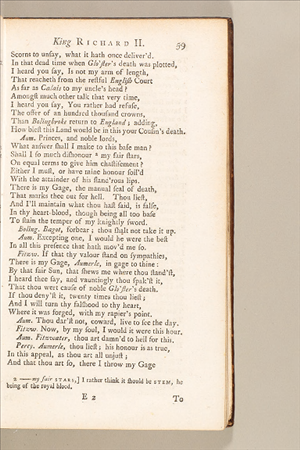 King RICHARD II. 59
Scorns to unsay, what it hath once deliver'd.
In that dead time when Glo'ster's death was plotted,
I heard you say, Is not my arm of length,
That reacheth from the restful English Court
As far as Calais to my uncle's head?
Amongst much other talk that very time,
I heard you say, You rather had refuse,
The offer of an hundred thousand crowns,
Than Bolingbroke return to England; adding,
How blest this Land would be in this your Cousin's death.
Aum. Princes, and noble lords,
What answer shall I make to this base man?
Shall I so much dishonour ª my fair stars,
On equal terms to give him chastisement?
Either I must, or have mine honour soil'd
With the attainder of his sland'rous lips.
There is my Gage, the manual seal of death,
That marks thee out for hell. Thou liest,
And I'll maintain what thou hast said, is false,
In thy heart-blood, though being all too base
To stain the temper of my knightly sword.
Boling. Bagot, forbear; thou shalt not take it up.
Aum. Excepting one, I would he were the best
In all this presence that hath mov'd me so.
Fitzw. If that thy valour stand on sympathies,
There is my Gage, Aumerle, in gage to thine:
By that fair Sun, that shews me where thou stand'st,
I heard thee say, and vauntingly thou spak'st it,
That thou wert cause of noble Glo'ster's death.
If thou deny'st it, twenty times thou liest;
And I will turn thy falshood to thy heart,
Where it was forged, with my rapier's point.
Aum. Thou dar'st not, coward, live to see the day.
Fitzw. Now, by my soul, I would it were this hour.
Aum. Fitzwater, thou art damn'd to hell for this.
Percy. Aumerle, thou liest; his honour is as true,
In this appeal, as thou art all unjust;
And that thou art so, there I throw my Gage
a —my fair STARS,] I rather think it should be STEM, he
being of the royal blood.
E 2 To